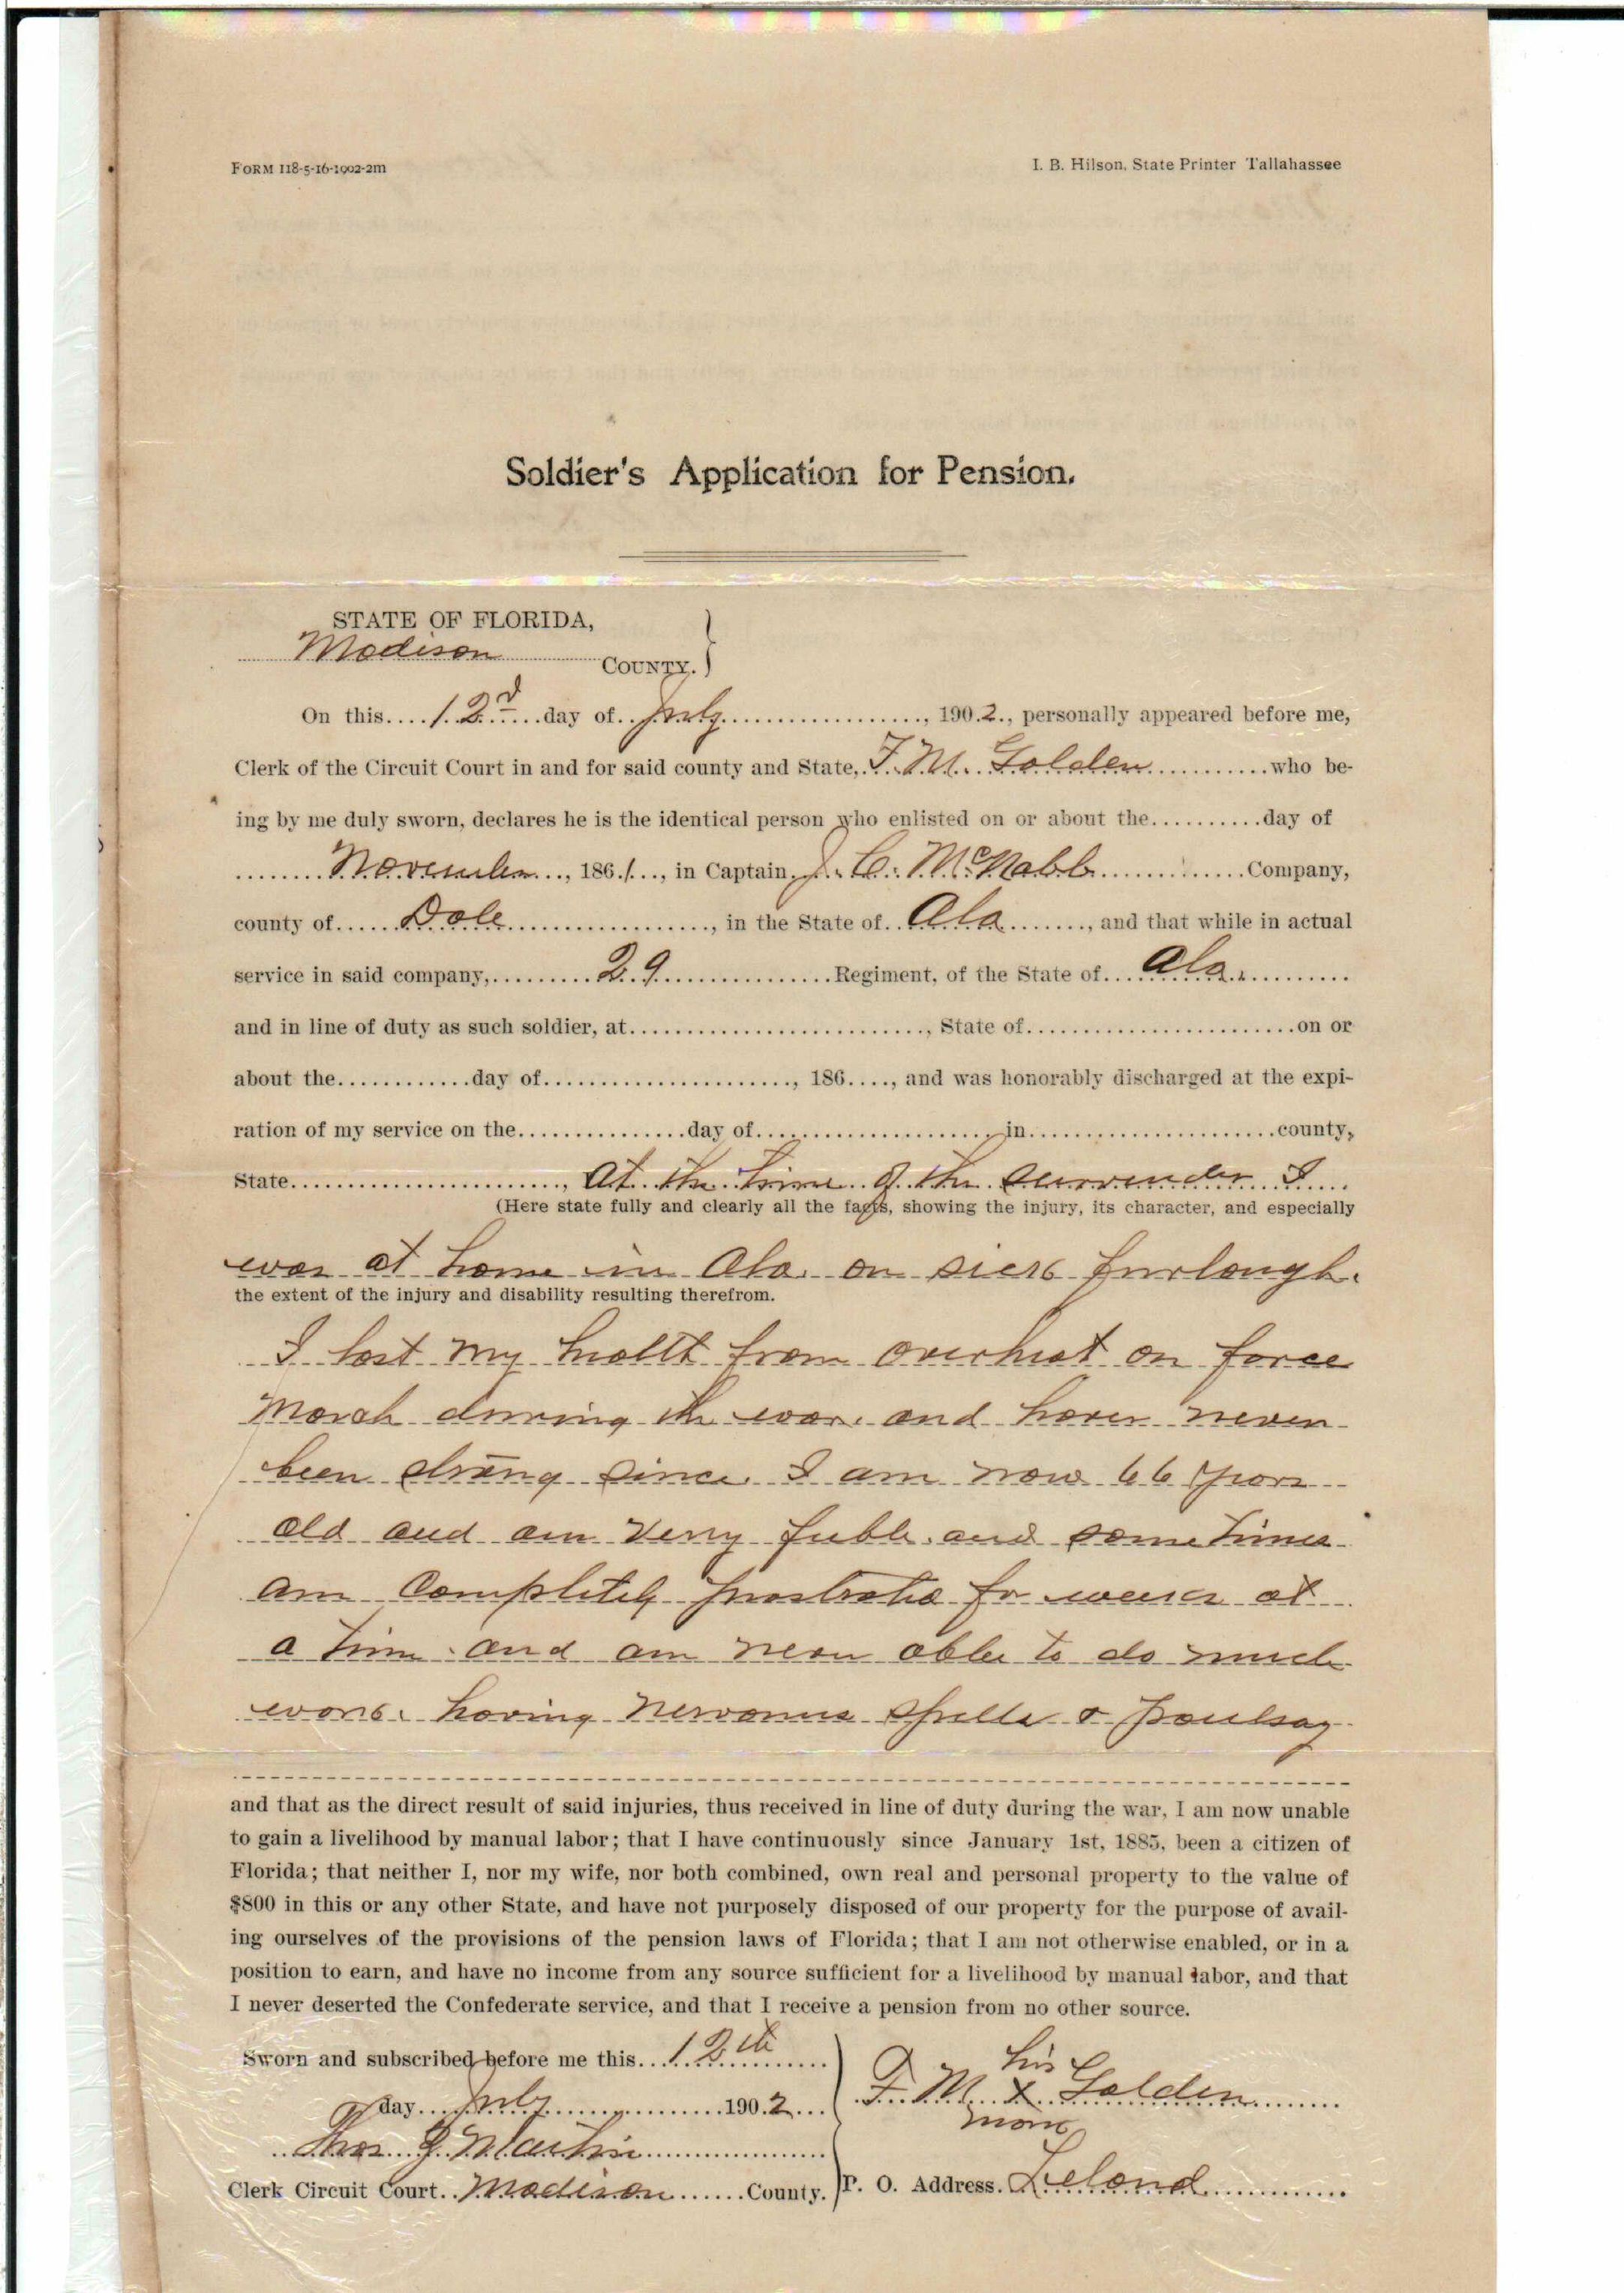 FORM 118-5-16-1902-2m
I. B. Hilson, State Printer Tallahassee
Soldier's Application for Pension.
STATE OF FLORIDA,
Madison COUNTY.
On this....12d....day of..July..................., 190.2., personally appeared before me,
Clerk of the Circuit Court in and for said county and State,.F. M. Golden............who be-
ing by me duly sworn, declares he is the identical person who enlisted on or about the..........day of
........November..., 186.1..., in Captain.J. C. McNabb..............Company,
county of......Dale..................., in the State of..Ala........, and that while in actual
service in said company,..........29................Regiment, of the State of....Ala...........
and in line of duty as such soldier, at..........................., State of.........................on or
about the............day of......................, 186...., and was honorably discharged at the expi-
ration of my service on the...............day of......................in.......................county,
State........................., At the time of the surrender I....
(Here state fully and clearly all the facts, showing the injury, its character, and especially
was at home in Ala. on sick furlough.
the extent of the injury and disability resulting therefrom.
I lost my health from overheat on force
march during the war. and have never
been strong since. I am now 66 years
old and am verry feeble. and some times
am completely prostrated for weeks at
a time. and am never able to do much
work. having nervous spells & paulsay
and that as the direct result of said injuries, thus received in line of duty during the war, I am now unable
to gain a livelihood by manual labor; that I have continuously since January 1st, 1885, been a citizen of
Florida; that neither I, nor my wife, nor both combined, own real and personal property to the value of
$800 in this or any other State, and have not purposely disposed of our property for the purpose of avail-
ing ourselves of the provisions of the pension laws of Florida; that I am not otherwise enabled, or in a
position to earn, and have no income from any source sufficient for a livelihood by manual labor, and that
I never deserted the Confederate service, and that I receive a pension from no other source.
Sworn and subscribed before me this...12th.......
day....July.................190.2...
his
F. M. X Golden
mark
Thos. J. Martin
Clerk Circuit Court..Madison.......County.
P. O. Address. Leland